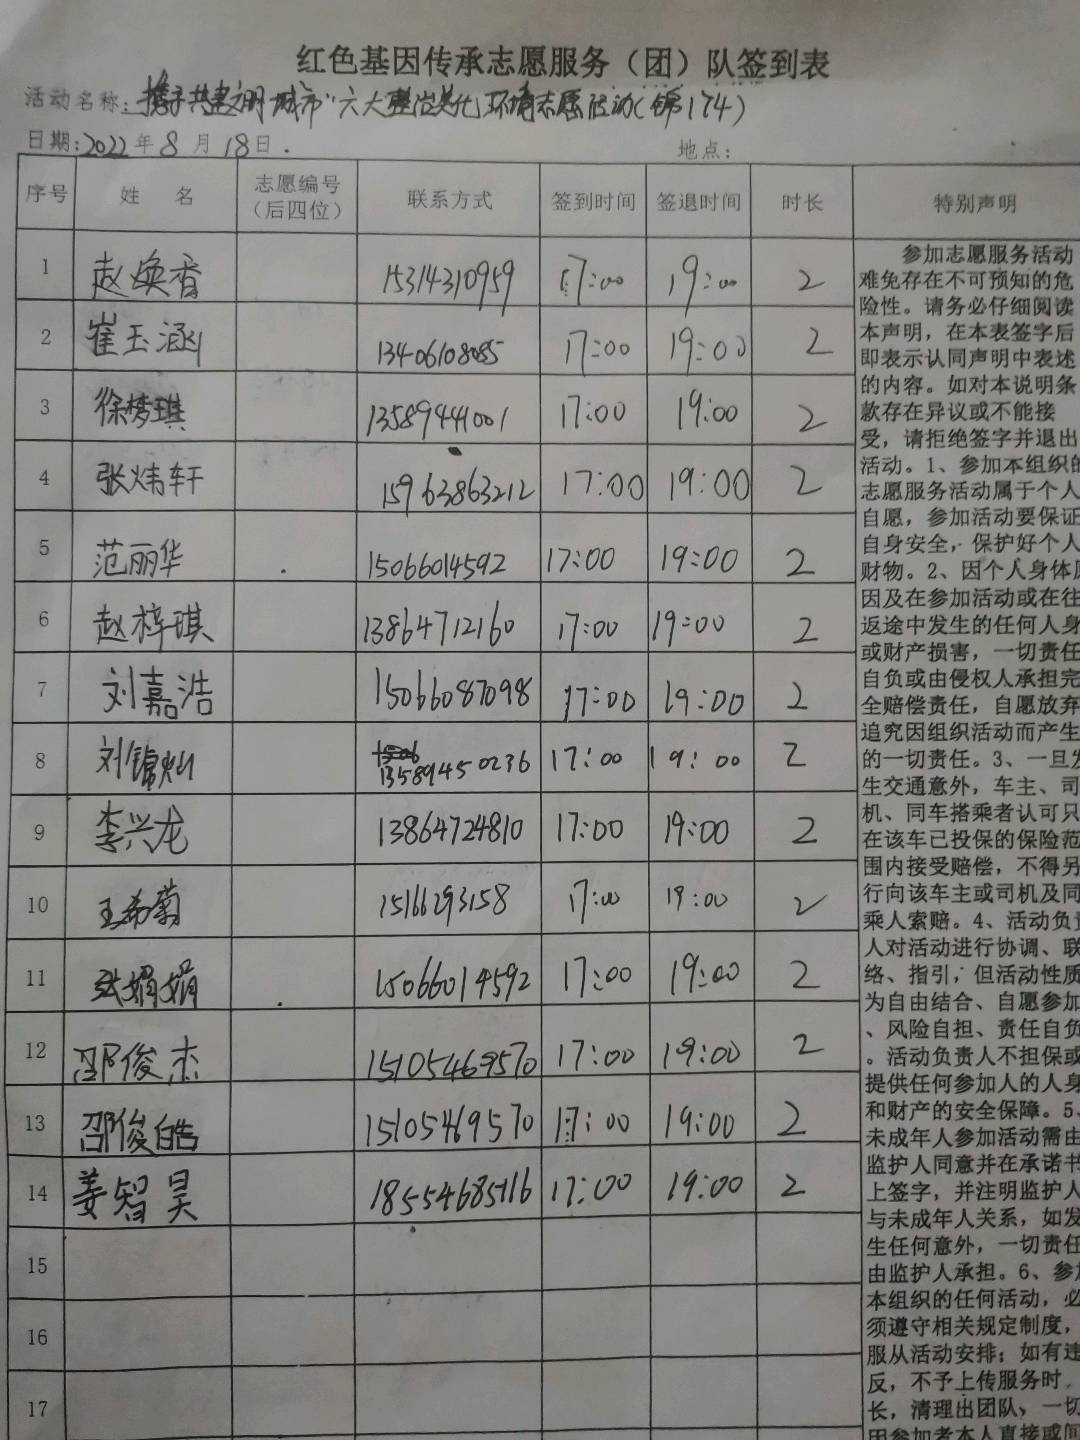 红色基因传承志愿服务（团）队签到表
活动名称：携手共建文明城市"六大整治美化环境志愿活动(第174)
日期:2022年8月18日.
地点:
序号 姓 名 志愿编号（后四位） 联系方式 签到时间 签退时间 时长 特别声明
1 赵焕香 15314310959 17:00 19:00 2
2 崔玉涵 13406108085 17:00 19:00 2
3 徐梦琪 13589441001 17:00 19:00 2
4 张炜轩 15963863212 17:00 19:00 2
5 范丽华 15066014592 17:00 19:00 2
6 赵梓琪 13864712160 17:00 19:00 2
7 刘嘉浩 15066087098 17:00 19:00 2
8 刘锦灿 13589450236 17:00 19:00 2
9 李兴龙 13864724810 17:00 19:00 2
10 王希菊 15166293158 17:00 19:00 2
11 张娟娟 15066014592 17:00 19:00 2
12 邵俊杰 15105469570 17:00 19:00 2
13 邵俊皓 15105469570 17:00 19:00 2
14 姜智昊 18554685116 17:00 19:00 2
15
16
17
参加志愿服务活动
难免存在不可预知的危
险性。请务必仔细阅读
本声明，在本表签字后
即表示认同声明中表述
的内容。如对本说明条
款存在异议或不能接
受，请拒绝签字并退出
活动。1、参加本组织的
志愿服务活动属于个人
自愿，参加活动要保证
自身安全，保护好个人
财物。2、因个人身体原
因及在参加活动或在往
返途中发生的任何人身
或财产损害，一切责任
自负或由侵权人承担完
全赔偿责任，自愿放弃
追究因组织活动而产生
的一切责任。3、一旦发
生交通意外，车主、司
机、同车搭乘者认可只
在该车已投保的保险范
围内接受赔偿，不得另
行向该车主或司机及同
乘人索赔。4、活动负责
人对活动进行协调、联
络、指引，但活动性质
为自由结合、自愿参加
、风险自担、责任自负
。活动负责人不担保或
提供任何参加人的人身
和财产的安全保障。5、
未成年人参加活动需由
监护人同意并在承诺书
上签字，并注明监护人
与未成年人关系，如发
生任何意外，一切责任
由监护人承担。6、参加
本组织的任何活动，必
须遵守相关规定制度，
服从活动安排；如有违
反，不予上传服务时
长，清理出团队、一切
因参加者本人直接或间